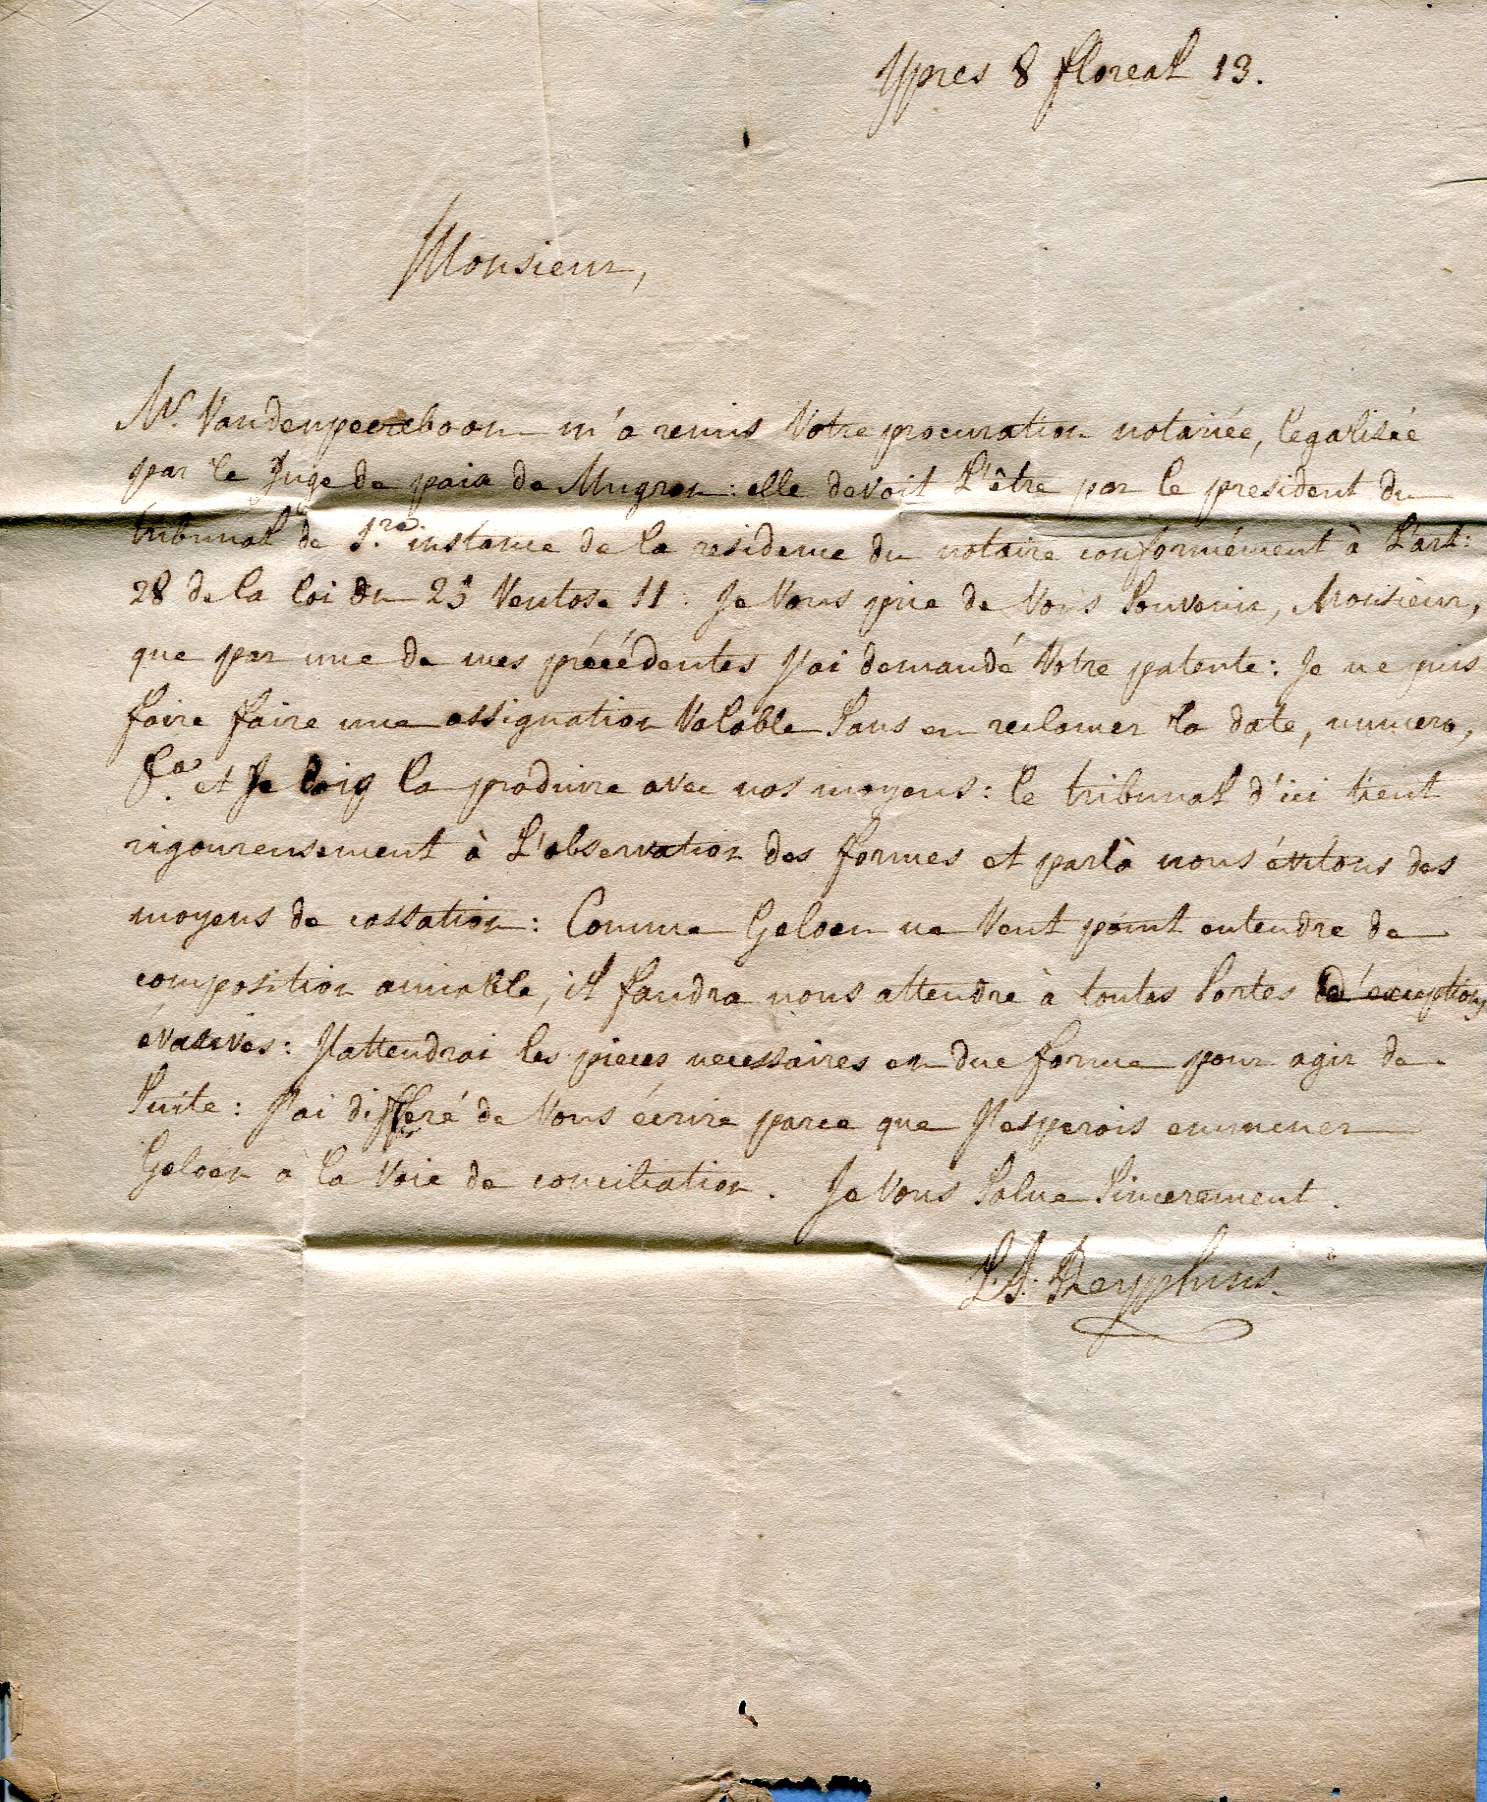 Ypres 8 floreal 13.
Monsieur,
Mr. Vandenpeereboom m'a remis Votre procuration notariée, légalisée
par le Juge de paix de Mugron : elle devoit L'être par le president du
tribunal de 1.re instance de la residence du notaire conformément à L'art:
28 de la loi du 25 Ventose 11 : Je Vous prie de Vous Souvenir, Monsieur,
que par une de mes précédentes J'ai demandé Votre patente : Je ne puis
faire faire une assignation Valable Sans en reclamer la date, numero,
et Je la produire avec nos moyens : le tribunal d'ici tient
rigoureusement à L'observation des formes et parlà nous évitons des
moyens de cassation : Comme Geloen ne Veut point entendre de
composition aimable, il faudra nous attendre à toutes Sortes d'exceptions
évasives : J'attendrai les pieces necessaires en due forme pour agir de
Suite : J'ai differé de Vous écrire parce que J'esperois emmener
Geloen à la Voie de conciliation. Je Vous Salue Sincerement.
L.J. Reyphins.